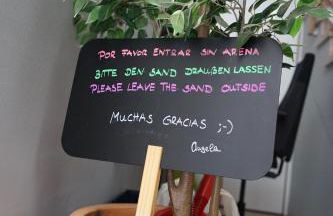 POR FAVOR ENTRAR SIN ARENA
BITTE DEN SAND DRAUßEN LASSEN
PLEASE LEAVE THE SAND OUTSIDE
MUCHAS GRACIAS ;-)
Angela